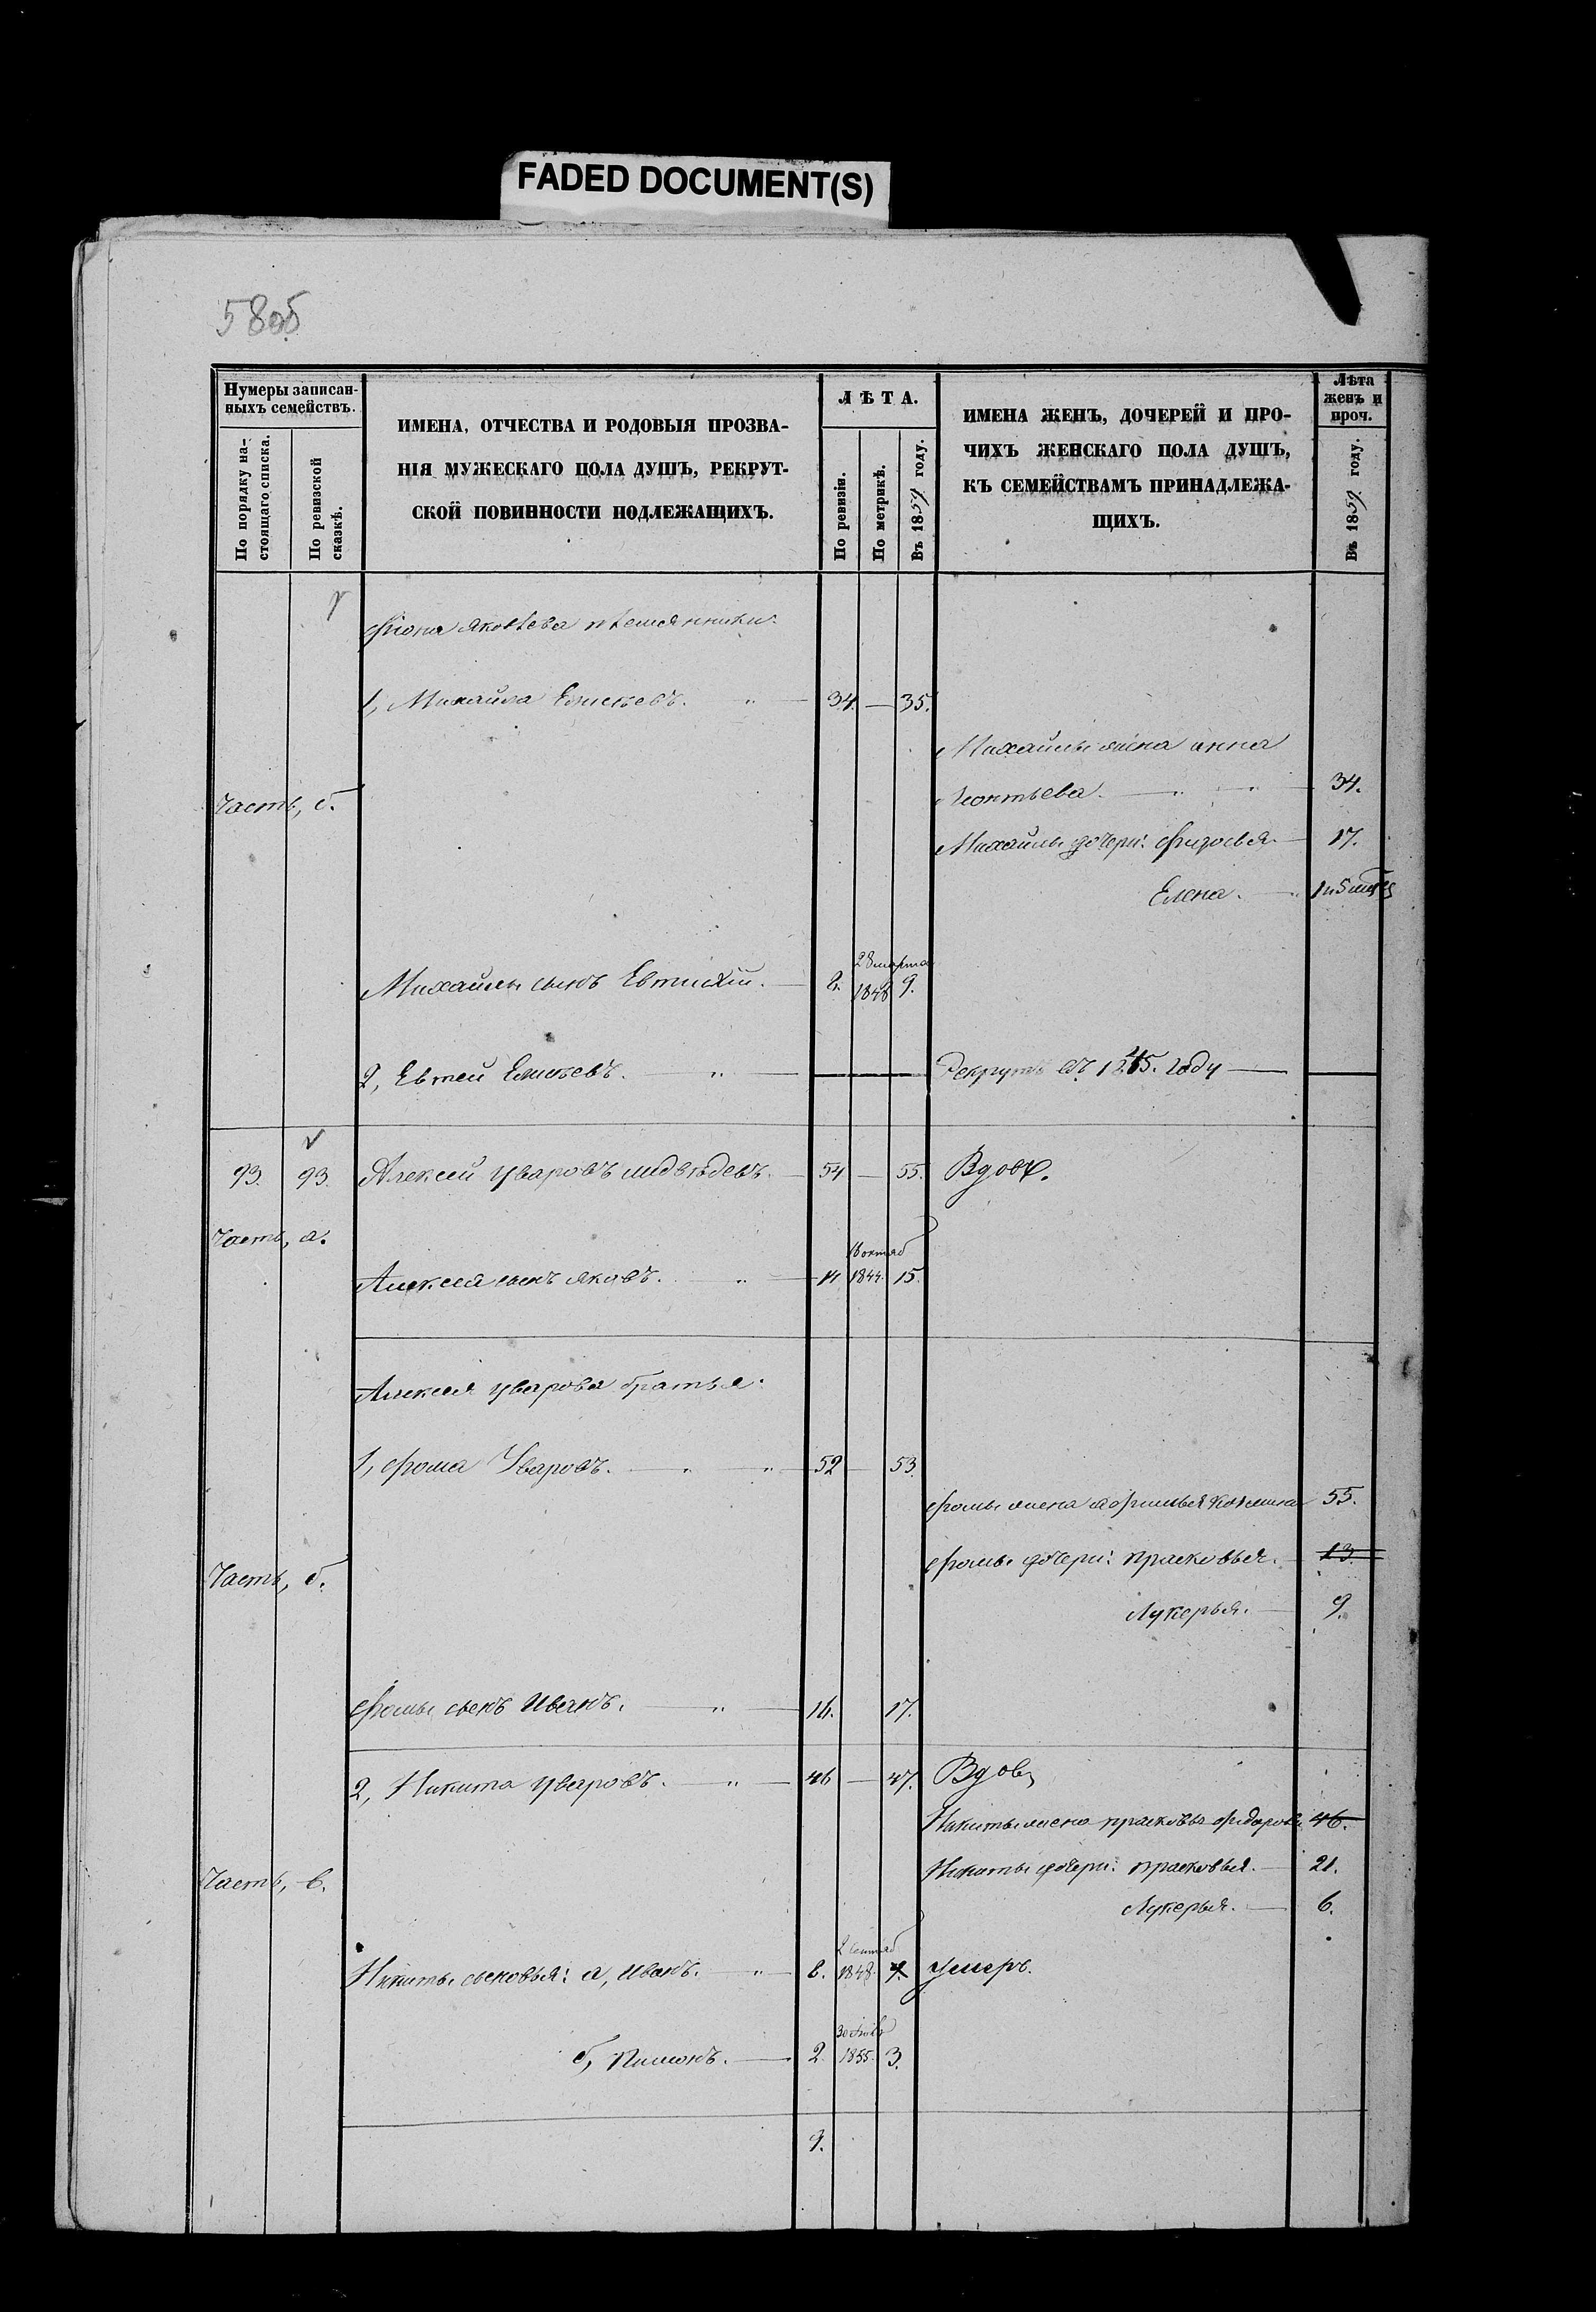 FADED DOCUMENT(S)
58об
Нумеры записан-
ныхъ семействъ.
По порядку на-
стоящаго списка.
По ревизской
сказкѣ.
ИМЕНА, ОТЧЕСТВА И РОДОВЫЯ ПРОЗВА-
НІЯ МУЖЕСКАГО ПОЛА ДУШЪ, РЕКРУТ-
СКОЙ ПОВИННОСТИ ПОДЛЕЖАЩИХЪ.
ЛѢТА.
По ревизіи.
По метрикѣ.
Въ 1859 году.
ИМЕНА ЖЕНЪ, ДОЧЕРЕЙ И ПРО-
ЧИХЪ ЖЕНСКАГО ПОЛА ДУШЪ,
КЪ СЕМЕЙСТВАМЪ ПРИНАДЛЕЖА-
ЩИХЪ.
Лѣта
женъ и
проч.
Въ 1859 году.
Яковлева племянники:
1, Михайла 34. — 35.
Михайлы жена анна
Леонтьева. 34.
Часть, б.
Михайлы дочери: Фидосья 17.
Елена.
28 марта
Михайлы сынъ Евтихій. 1848 9.
2, Евтей Рекрутъ въ 1845. году
93. 93. Алексѣй Уваровъ медвѣдевъ. 54 — 55. Вдовъ.
Часть, а.
16 октяб
Алексѣя сынъ яковъ. 14 1844. 15.
Алексѣя Уварова братья:
1, Фома Уваровъ. 52 53.
Фомы жена 55.
Фомы дочери: прасковья. 13.
Часть, б.
Лукерья. 9.
Фомы сынъ Иванъ. 16. 17.
2, Никита Уваровъ. 46 — 47. Вдов
Никиты жена прасковья Фидорова 46.
Никиты дочери: прасковья. 21.
Часть, в.
Лукерья. 6.
2 Сентяб
Никиты сыновья: а, иванъ. 8. 1848. умеръ.
б, Пименъ. 2. 1855. 3.
9.